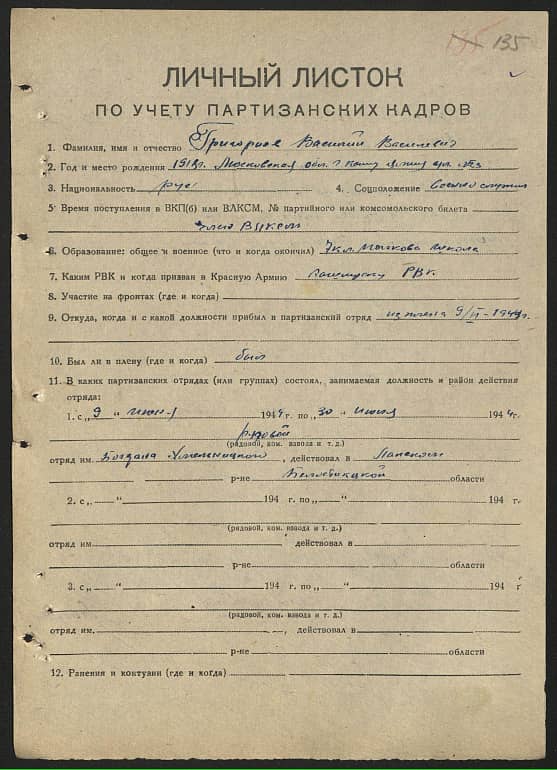 135 135
ЛИЧНЫЙ ЛИСТОК
ПО УЧЕТУ ПАРТИЗАНСКИХ КАДРОВ
1. Фамилия, имя и отчество Григорьев Василий Василевич
2. Год и место рождения 1918г. Московская обл. г.
3. Национальность рус 4. Соцположение
5. Время поступления в ВКП(б) или ВЛКСМ, № партийного или комсомольского билета
Член ВЛКСМ
6. Образование: общее и военное (что и когда окончил) 7кл. школа
7. Каким РВК и когда призван в Красную Армию РВК
8. Участие на фронтах (где и когда)
9. Откуда, когда и с какой должности прибыл в партизанский отряд из плена 9/VI-1944г.
10. Был ли в плену (где и когда) был
11. В каких партизанских отрядах (или группах) состоял, занимаемая должность и район действия
отряда:
1. с „9“ июня 1944 г. по „30“ июля 1944г.
рядовой
(рядовой, ком. взвода и т. д.)
отряд им. Богдана Хмельницкого, действовал в
р-не Белостокской области
2. с „ “ 194 г. по „ “ 194 г.
(рядовой, ком. взвода и т. д.)
отряд им. действовал в
р-не области
3. с „ “ 194 г. по „ “ 194 г
(рядовой, ком. взвода и т. д.)
отряд им. , действовал в
р-не области
12. Ранения и контузии (где и когда)